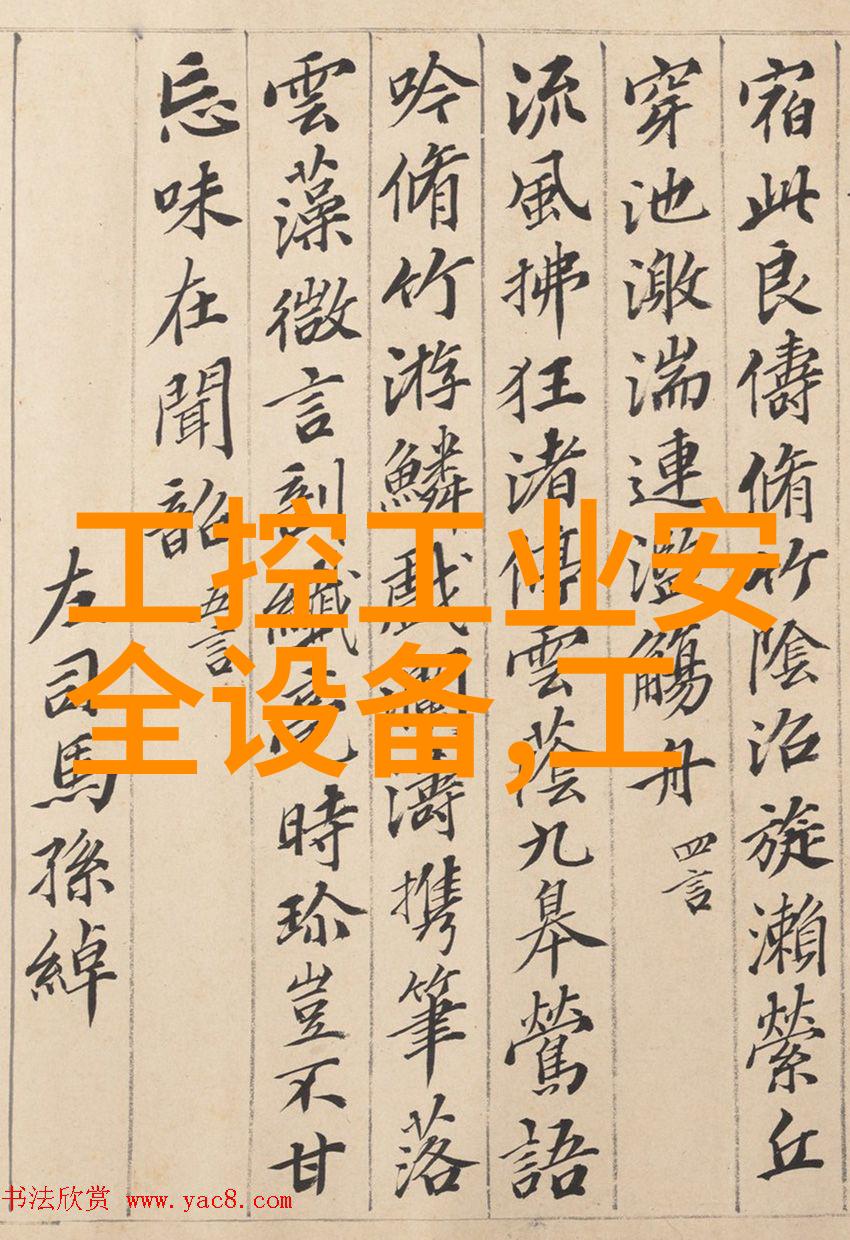 宿此良儔脩竹陰沼旋瀨縈丘
穿池激湍連濫觴舟 四言
流風拂狂渚停雲蔭九皋鶯語
吟脩竹游鱗戲瀾濤携筆落
雲藻微言剖纖毫時珍豈不甘
忘味在聞韶 五言
左司馬孫綽
工控工业安
全设备,工
书法欣赏 www.yac8.com